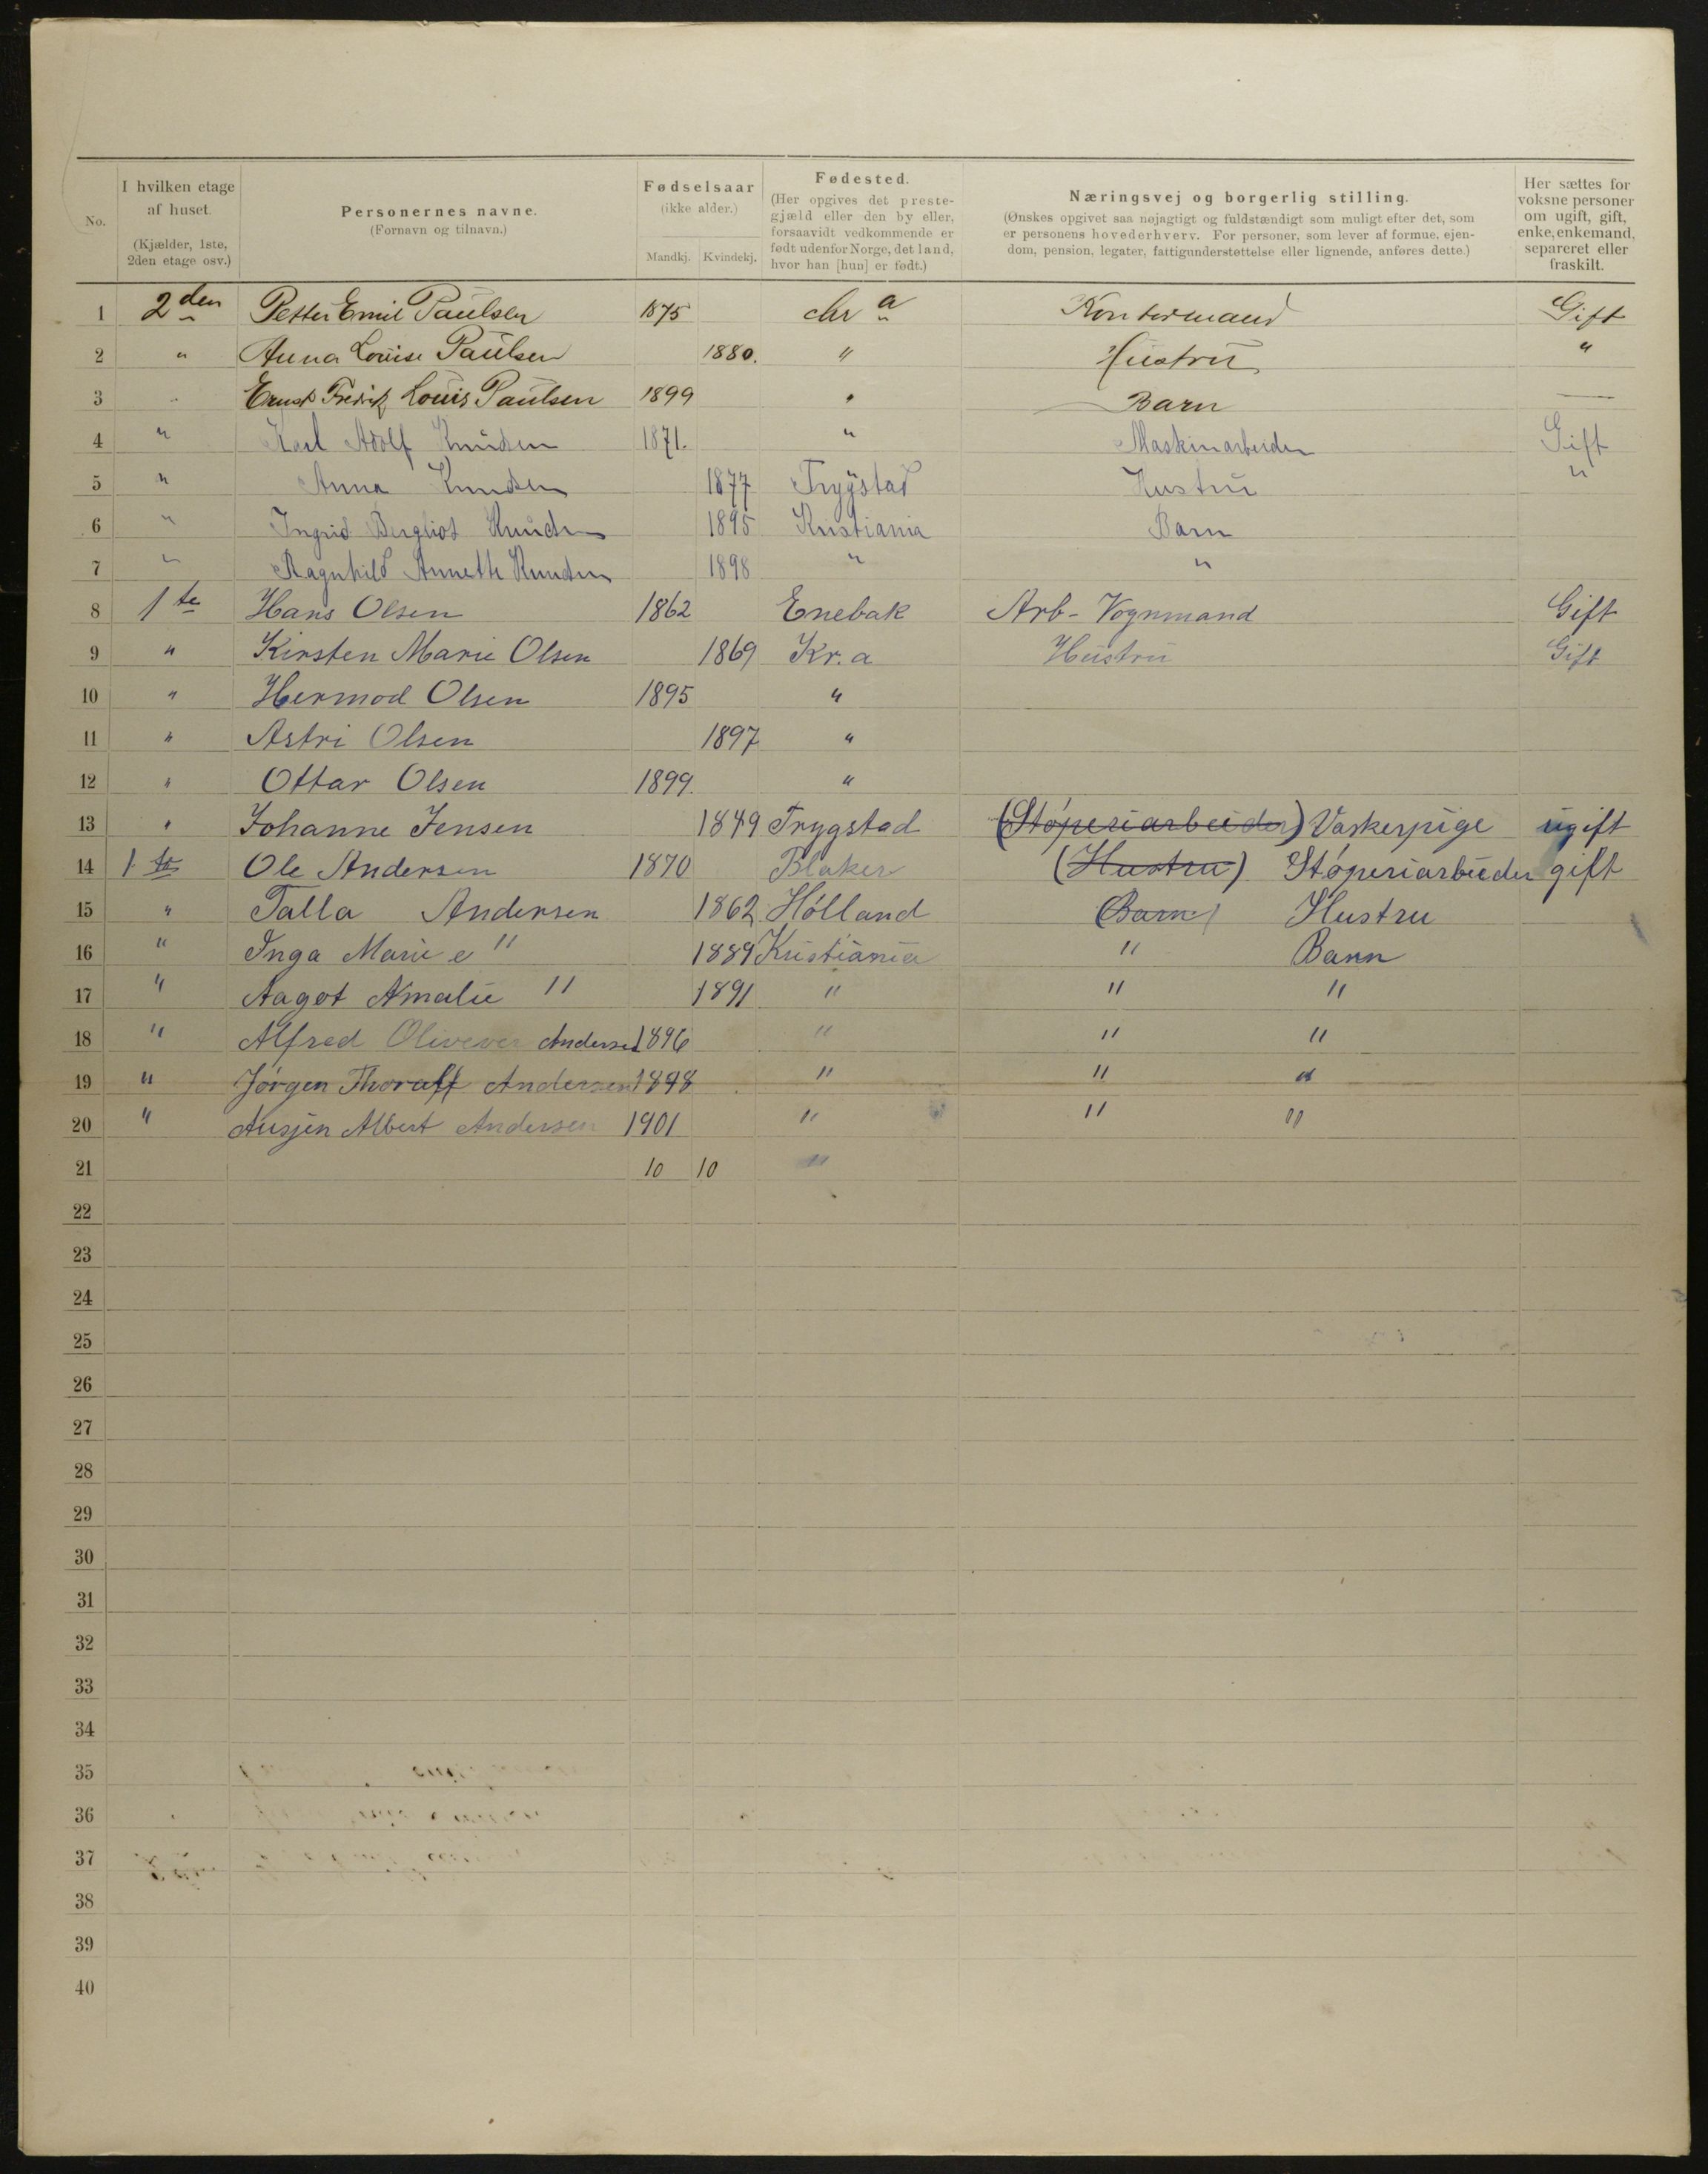 No.
I hvilken etage af huset. (Kjælder, 1ste, 2den etage osv.)
Personernes navne. (Fornavn og tilnavn.)
Fødselsaar (ikke alder.) Mandkj. Kvindekj.
Fødested. (Her opgives det prestegjæld eller den by eller, forsaavidt vedkommende er født udenfor Norge, det land, hvor han [hun] er født.)
Næringsvej og borgerlig stilling. (Ønskes opgivet saa nøjagtigt og fuldstændigt som muligt efter det, som er personens hovederhverv. For personer, som lever af formue, ejendom, pension, legater, fattigunderstøttelse eller lignende, anføres dette.)
Her sættes for voksne personer om ugift, gift, enke, enkemand, separeret eller fraskilt.
1 2den Petter Emil Paulsen 1875 Chr a Kontormand Gift
2 " Anna Louise Paulsen 1880. " Hustru "
3 " Ernst Fredrik Louis Paulsen 1899 " Barn —
4 " Karl Adolf Knudsen 1871. " Maskinarbeider Gift
5 " Anna Knudsen 1877 Trygstad Hustru "
6 " Ingrid Bergliot Knudsen 1895 Kristiania Barn
7 " Ragnhild Annette Knudsen 1898 " "
8 1te Hans Olsen 1862 Enebak Arb- Vognmand Gift
9 " Kirsten Marie Olsen 1869 Kr.a Hustru Gift
10 " Hermod Olsen 1895 "
11 " Astri Olsen 1897 "
12 " Ottar Olsen 1899. "
13 " Johanne Jensen 1849 Trygstad (Støperiarbeider) Vaskerpige ugift
14 1te Ole Andersen 1870 Blaker (Hustru) Støperiarbeider gift
15 " Talla Andersen 1862 Hølland (Barn) Hustru
16 " Inga Marie " 1889 Kristiania " Barn
17 " Aagot Amalie " 1891 " " "
18 " Alfred Andersen 1896 " " "
19 " Jørgen Thoralf Andersen 1898 " " "
20 " Albert Andersen 1901 " " "
21 10 10 "
22
23
24
25
26
27
28
29
30
31
32
33
34
35
36
37
38
39
40